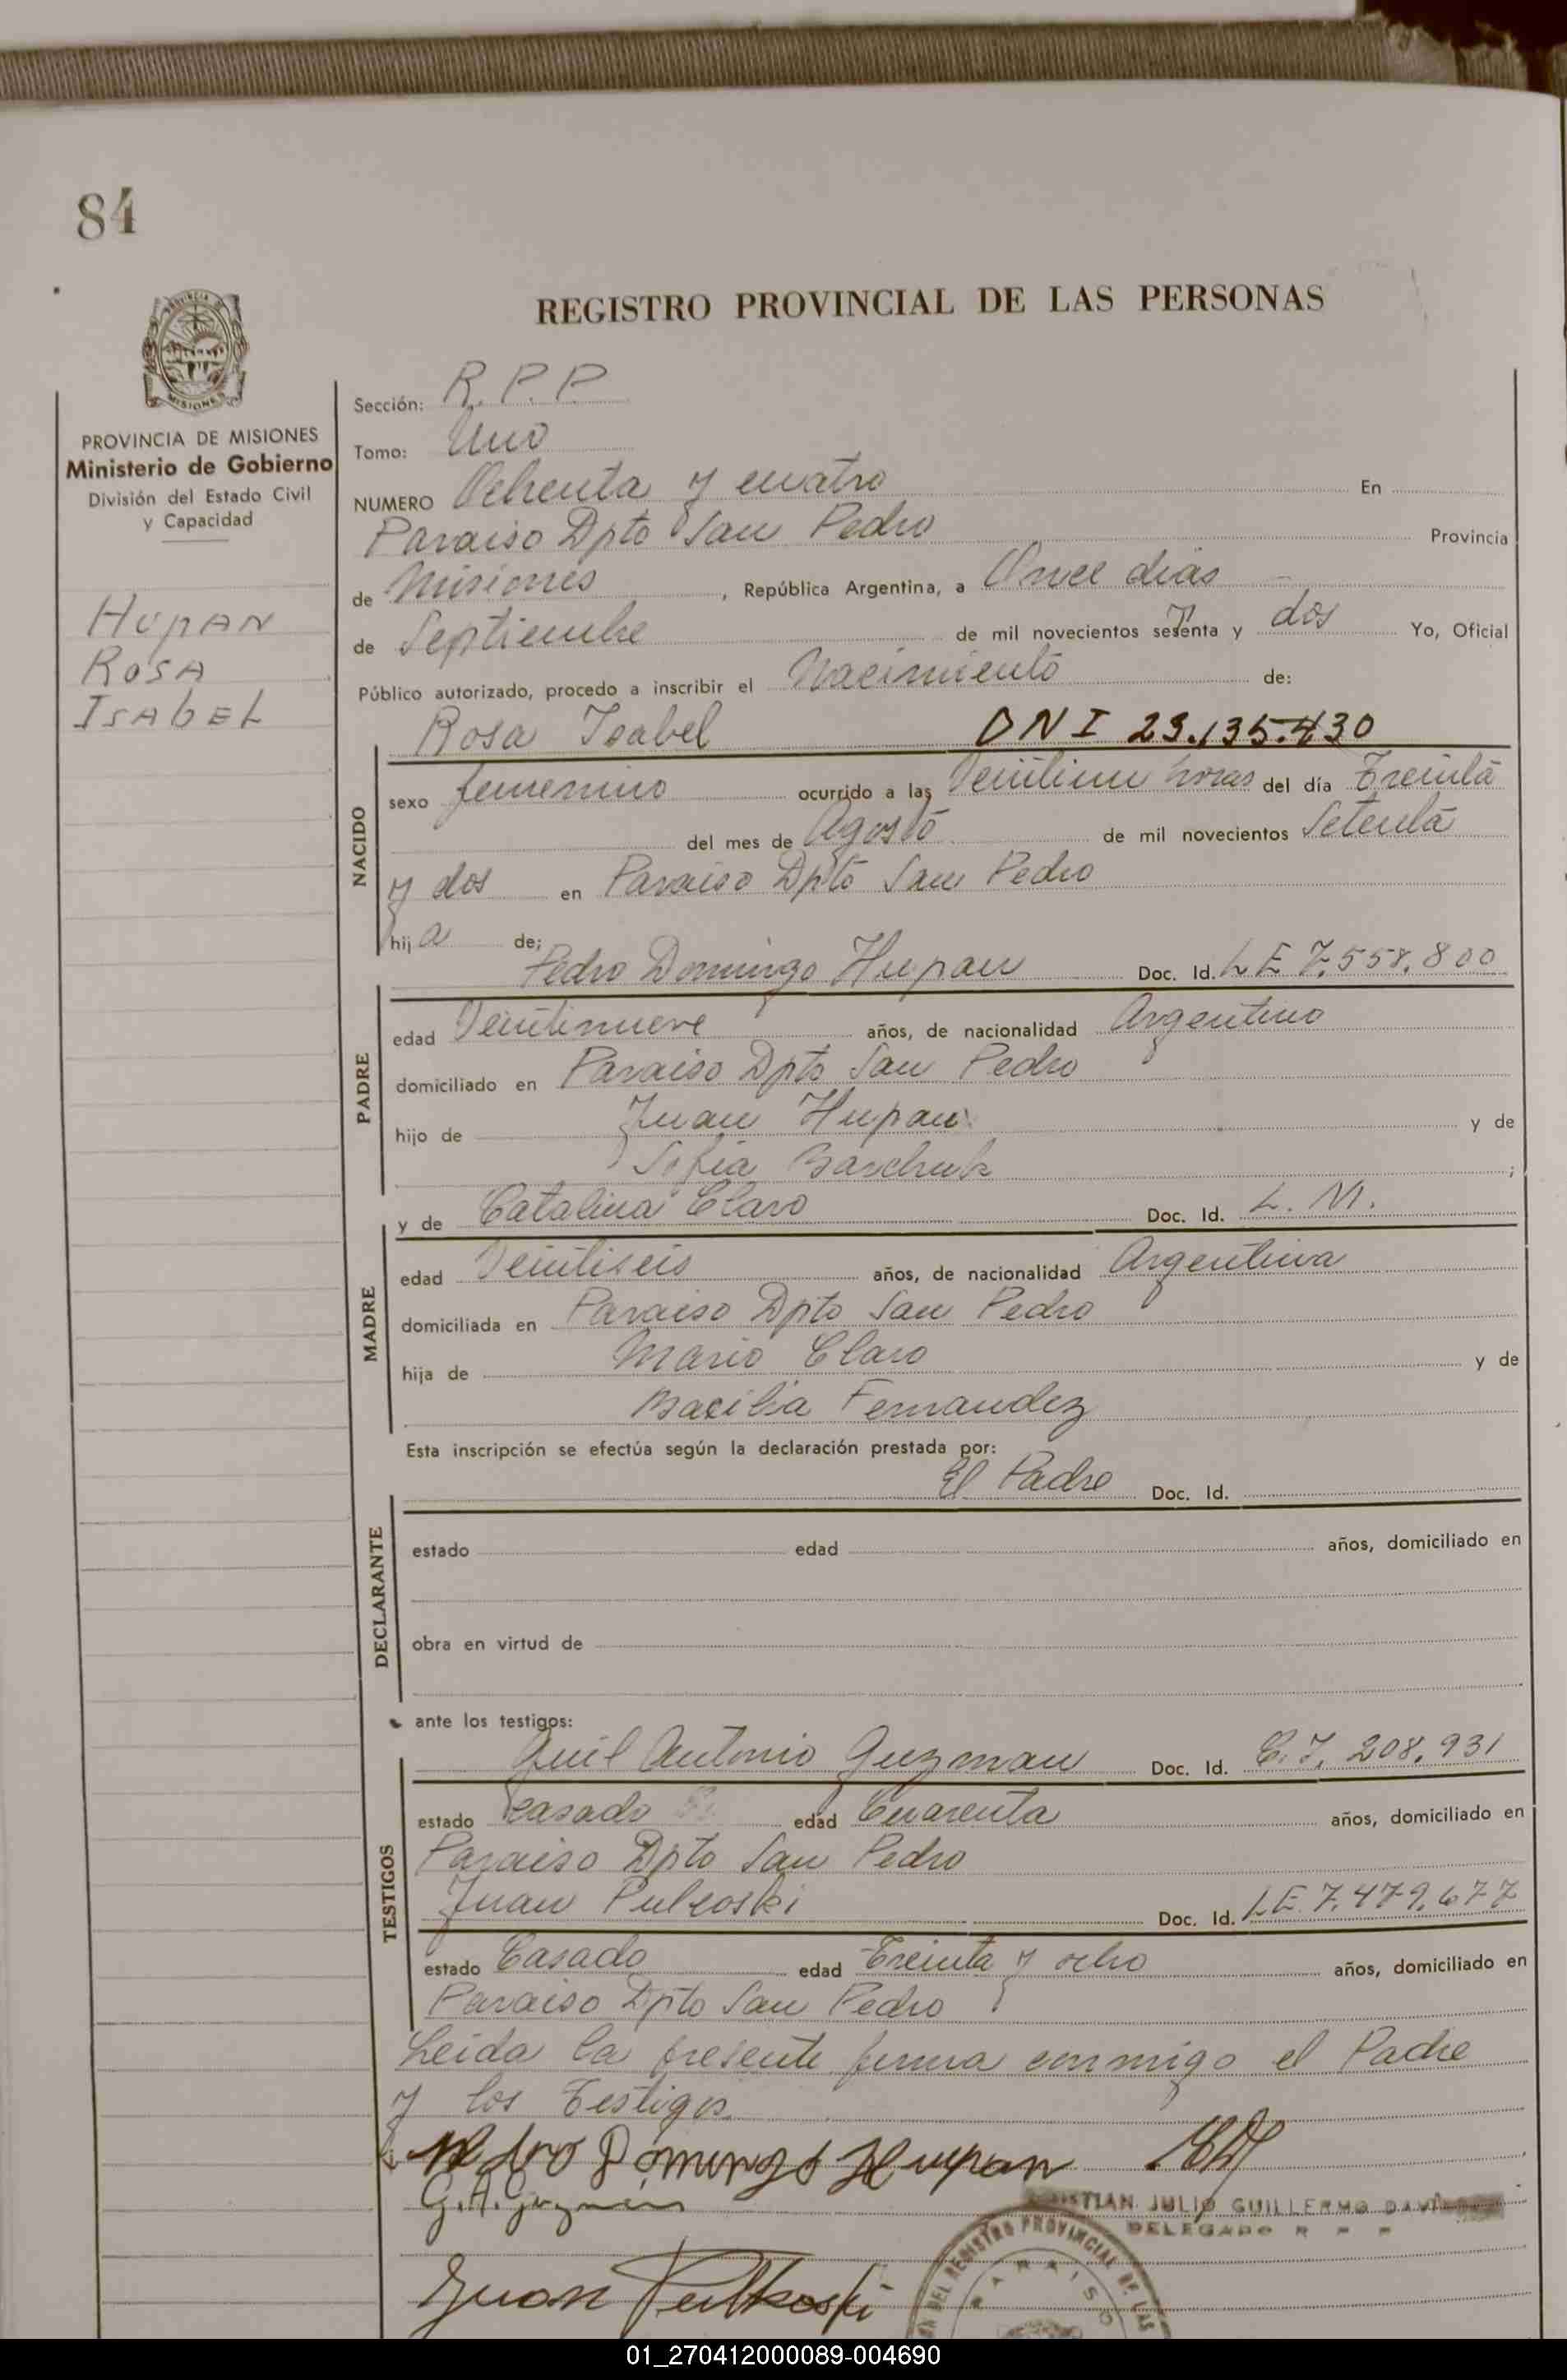 84
REGISTRO PROVINCIAL DE LAS PERSONAS
PROVINCIA DE MISIONES
Ministerio de Gobierno
División del Estado Civil
y Capacidad
HUPAN
ROSA
ISABEL
Sección: R.P.P.
Tomo: Uno
NUMERO Ochenta y cuatro En
Paraiso Dpto San Pedro Provincia
de Misiones , República Argentina, a Once dias
de Septiembre de mil novecientos setenta y dos Yo, Oficial
Público autorizado, procedo a inscribir el Nacimiento de:
Rosa Isabel DNI 23.135.430
NACIDO
sexo femenino ocurrido a las Veintiun horas del día Treinta
del mes de Agosto de mil novecientos Setenta
y dos en Paraiso Dpto San Pedro
hija de;
Pedro Domingo Hupan Doc. Id. LE 7.558.800
PADRE
edad Veintinueve años, de nacionalidad Argentino
domiciliado en Paraiso Dpto San Pedro
hijo de Juan Hupan y de
Sofia Baschuk ;
y de Catalina Claro Doc. Id. L. M.
MADRE
edad Veintiseis años, de nacionalidad Argentina
domiciliada en Paraiso Dpto San Pedro
hija de Mario Claro y de
Bacilia Fernandez
Esta inscripción se efectúa según la declaración prestada por:
El Padre Doc. Id.
DECLARANTE
estado edad años, domiciliado en
obra en virtud de
ante los testigos:
Antonio Guzman Doc. Id. C.I. 208.931
TESTIGOS
estado Casado edad Cuarenta años, domiciliado en
Paraiso Dpto San Pedro
Juan Pulkoski Doc. Id. LE 7.479.677
estado Casado edad Treinta y ocho años, domiciliado en
Paraiso Dpto San Pedro
Leida la presente firma conmigo el Padre
y los Testigos
Pedro Domingo Hupan
G.A. Guzman
JULIO GUILLERMO
DELEGADO R P P
Juan Pulkoski
DEL REGISTRO PROVINCIAL DE LAS
PARAISO
01_270412000089-004690